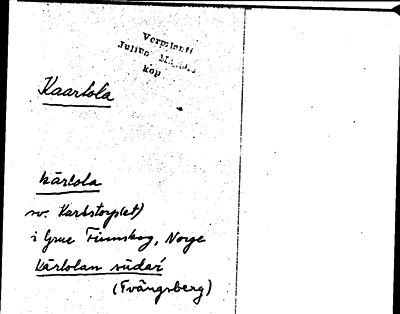 Vermlanti
Julius
kop
Kaartola
kārtola
sv. Karlstorp(et)
i Grue Finnskog, Norge
kārtolan sūdaŕ
(Tvängsberg)